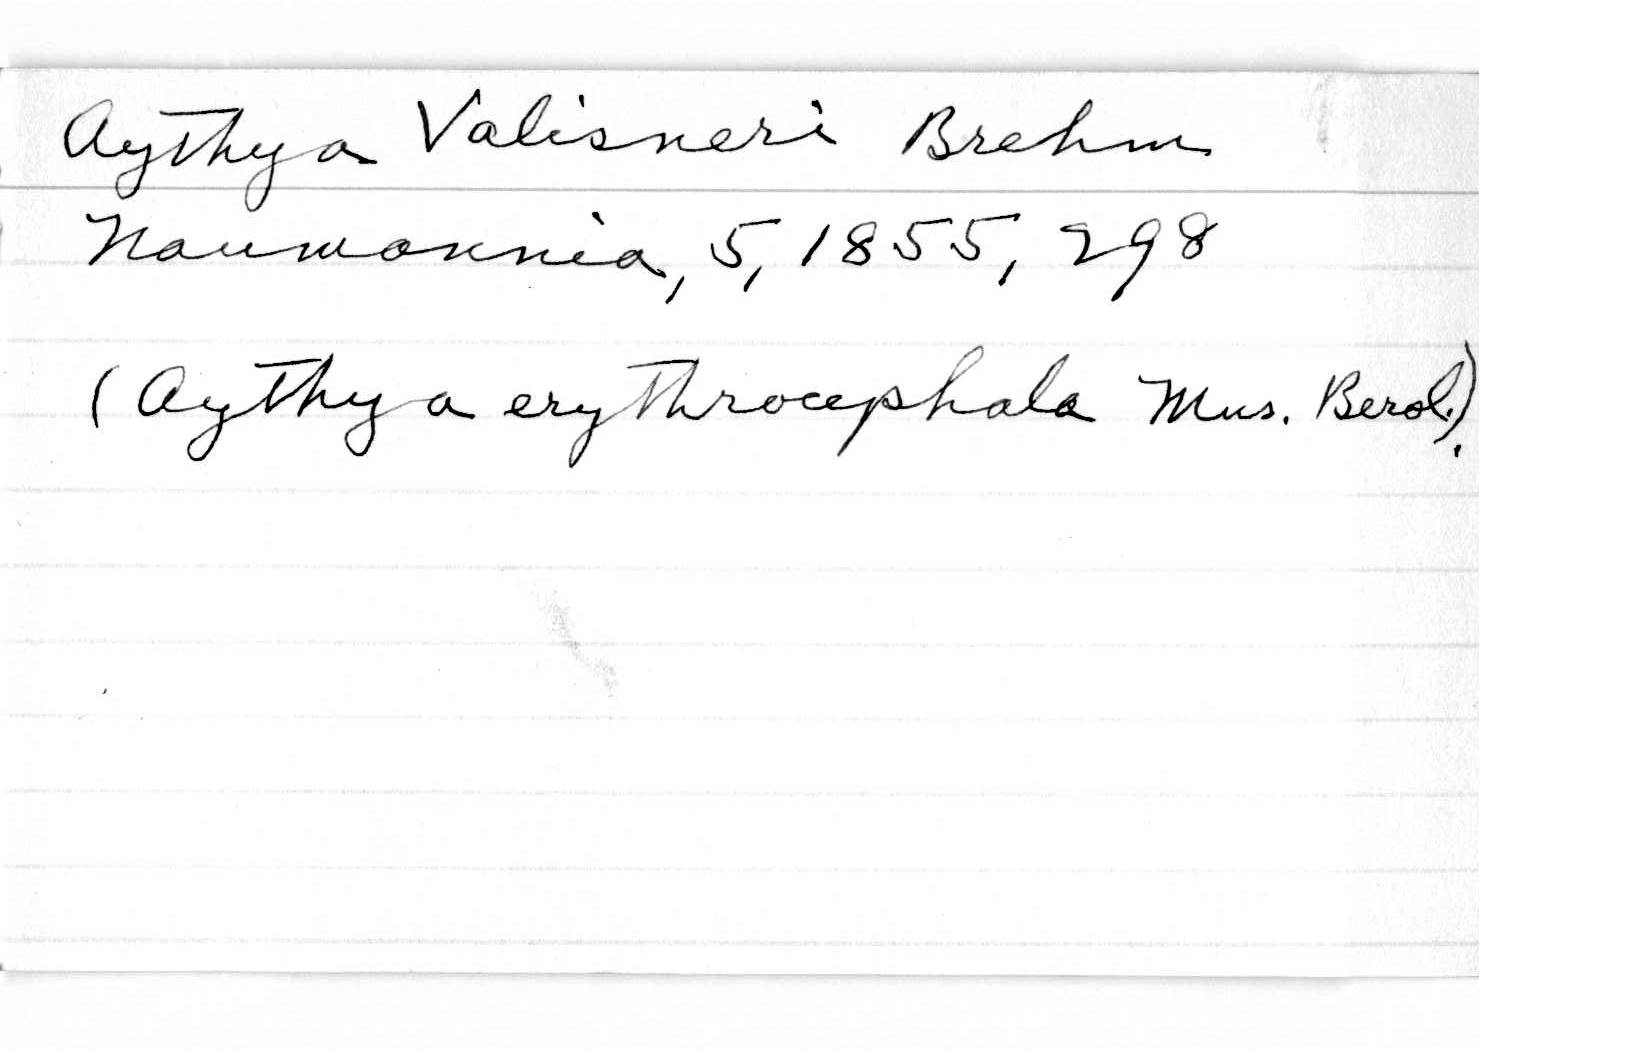 Aythya Valisneri Brehm
Naumannia, 5, 1855, 298
(Aythya erythrocephala Mus. Berol.).